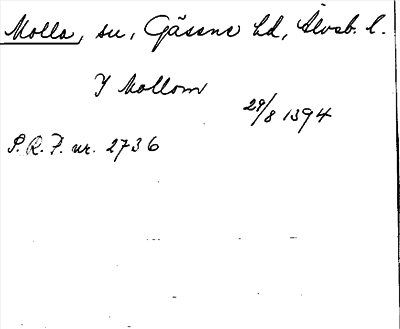 Molla, sn, Gäsene hd, Älvsb. l.
J Mollom
29/8 1394
S.R.P. nr. 2736